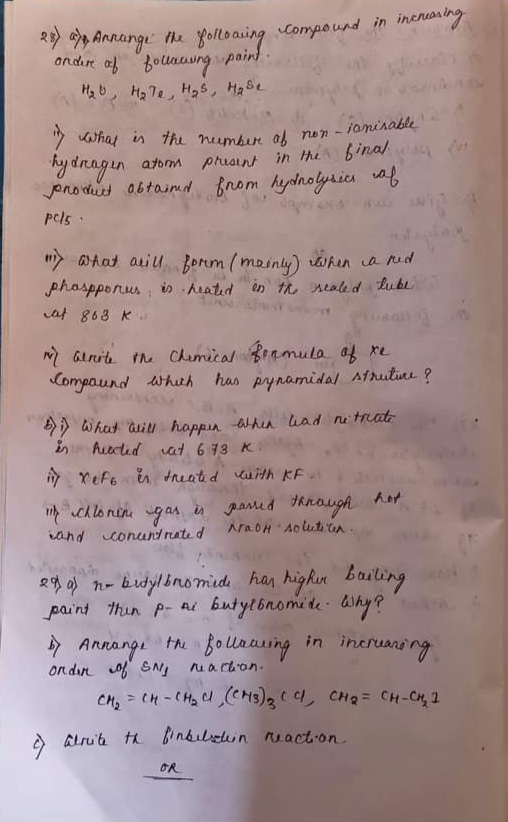 28) a) i) Arrange the following compound in increasing
order of following point.
H₂O, H₂Te, H₂S, H₂Se
ii) What is the number of non-ionisable
hydrogen atoms present in the final
product obtained from hydrolysics of
PCl5.
iii) What will form (mainly) when a red
phospporus, is heated in the sealed tube
at 803 K.
iv) Write the Chemical formula of Xe
Compound which has pyramidal struture?
b) i) What will happen when lead nitrate
is heated at 673 K.
ii) XeF6 is treated with KF.
iii) Chlorine gas is passed through hot
and concentrated NaOH solution.
29) a) n-butylbromide has higher boiling
point then butylbromide. Why?
b) Arrange the following in increasing
order of SN₁ reaction.
CH₂ = CH - CH₂Cl, (CH3)₃CCl, CH₂ = CH-CH₂I
c) Write th finkelstein reaction.
OR